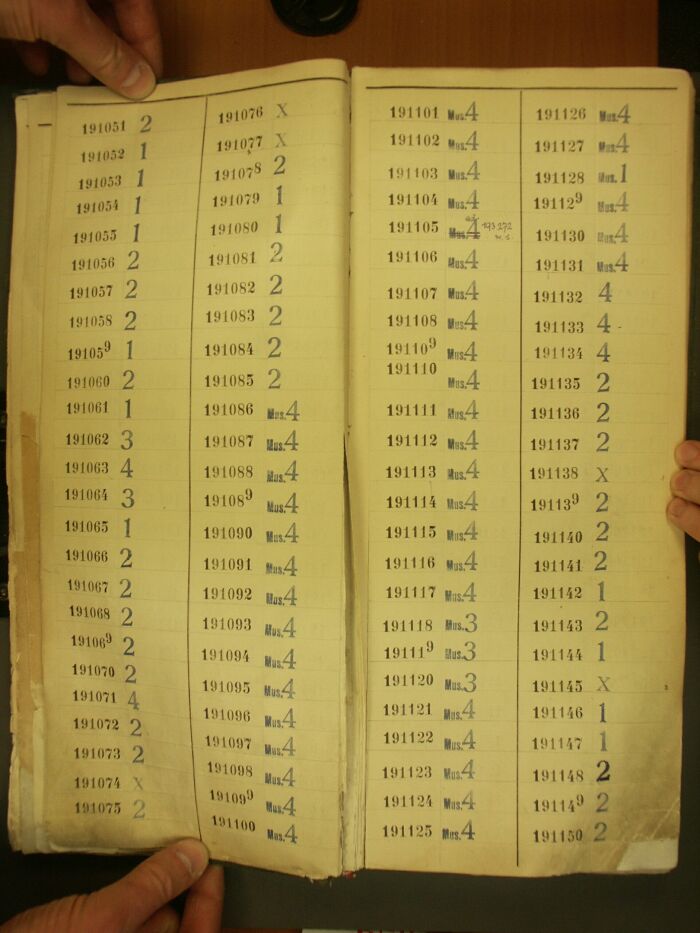 191051 2
191052 1
191053 1
191054 1
191055 1
191056 2
191057 2
191058 2
191059 1
191060 2
191061 1
191062 3
191063 4
191064 3
191065 1
191066 2
191067 2
191068 2
191069 2
191070 2
191071 4
191072 2
191073 2
191074 X
191075 2
191076 X
191077 X
191078 2
191079 1
191080 1
191081 2
191082 2
191083 2
191084 2
191085 2
191086 Mus.4
191087 Mus.4
191088 Mus.4
191089 Mus.4
191090 Mus.4
191091 Mus.4
191092 Mus.4
191093 Mus.4
191094 Mus.4
191095 Mus.4
191096 Mus.4
191097 Mus.4
191098 Mus.4
191099 Mus.4
191100 Mus.4
191101 Mus.4
191102 Mus.4
191103 Mus.4
191104 Mus.4
191105 Mus.4
191106 Mus.4
191107 Mus.4
191108 Mus.4
191109 Mus.4
191110 Mus.4
191111 Mus.4
191112 Mus.4
191113 Mus.4
191114 Mus.4
191115 Mus.4
191116 Mus.4
191117 Mus.4
191118 Mus.3
191119 Mus.3
191120 Mus.3
191121 Mus.4
191122 Mus.4
191123 Mus.4
191124 Mus.4
191125 Mus.4
191126 Mus.4
191127 Mus.4
191128 Mus.1
191129 Mus.4
191130 Mus.4
191131 Mus.4
191132 4
191133 4
191134 4
191135 2
191136 2
191137 2
191138 X
191139 2
191140 2
191141 2
191142 1
191143 2
191144 1
191145 X
191146 1
191147 1
191148 2
191149 2
191150 2